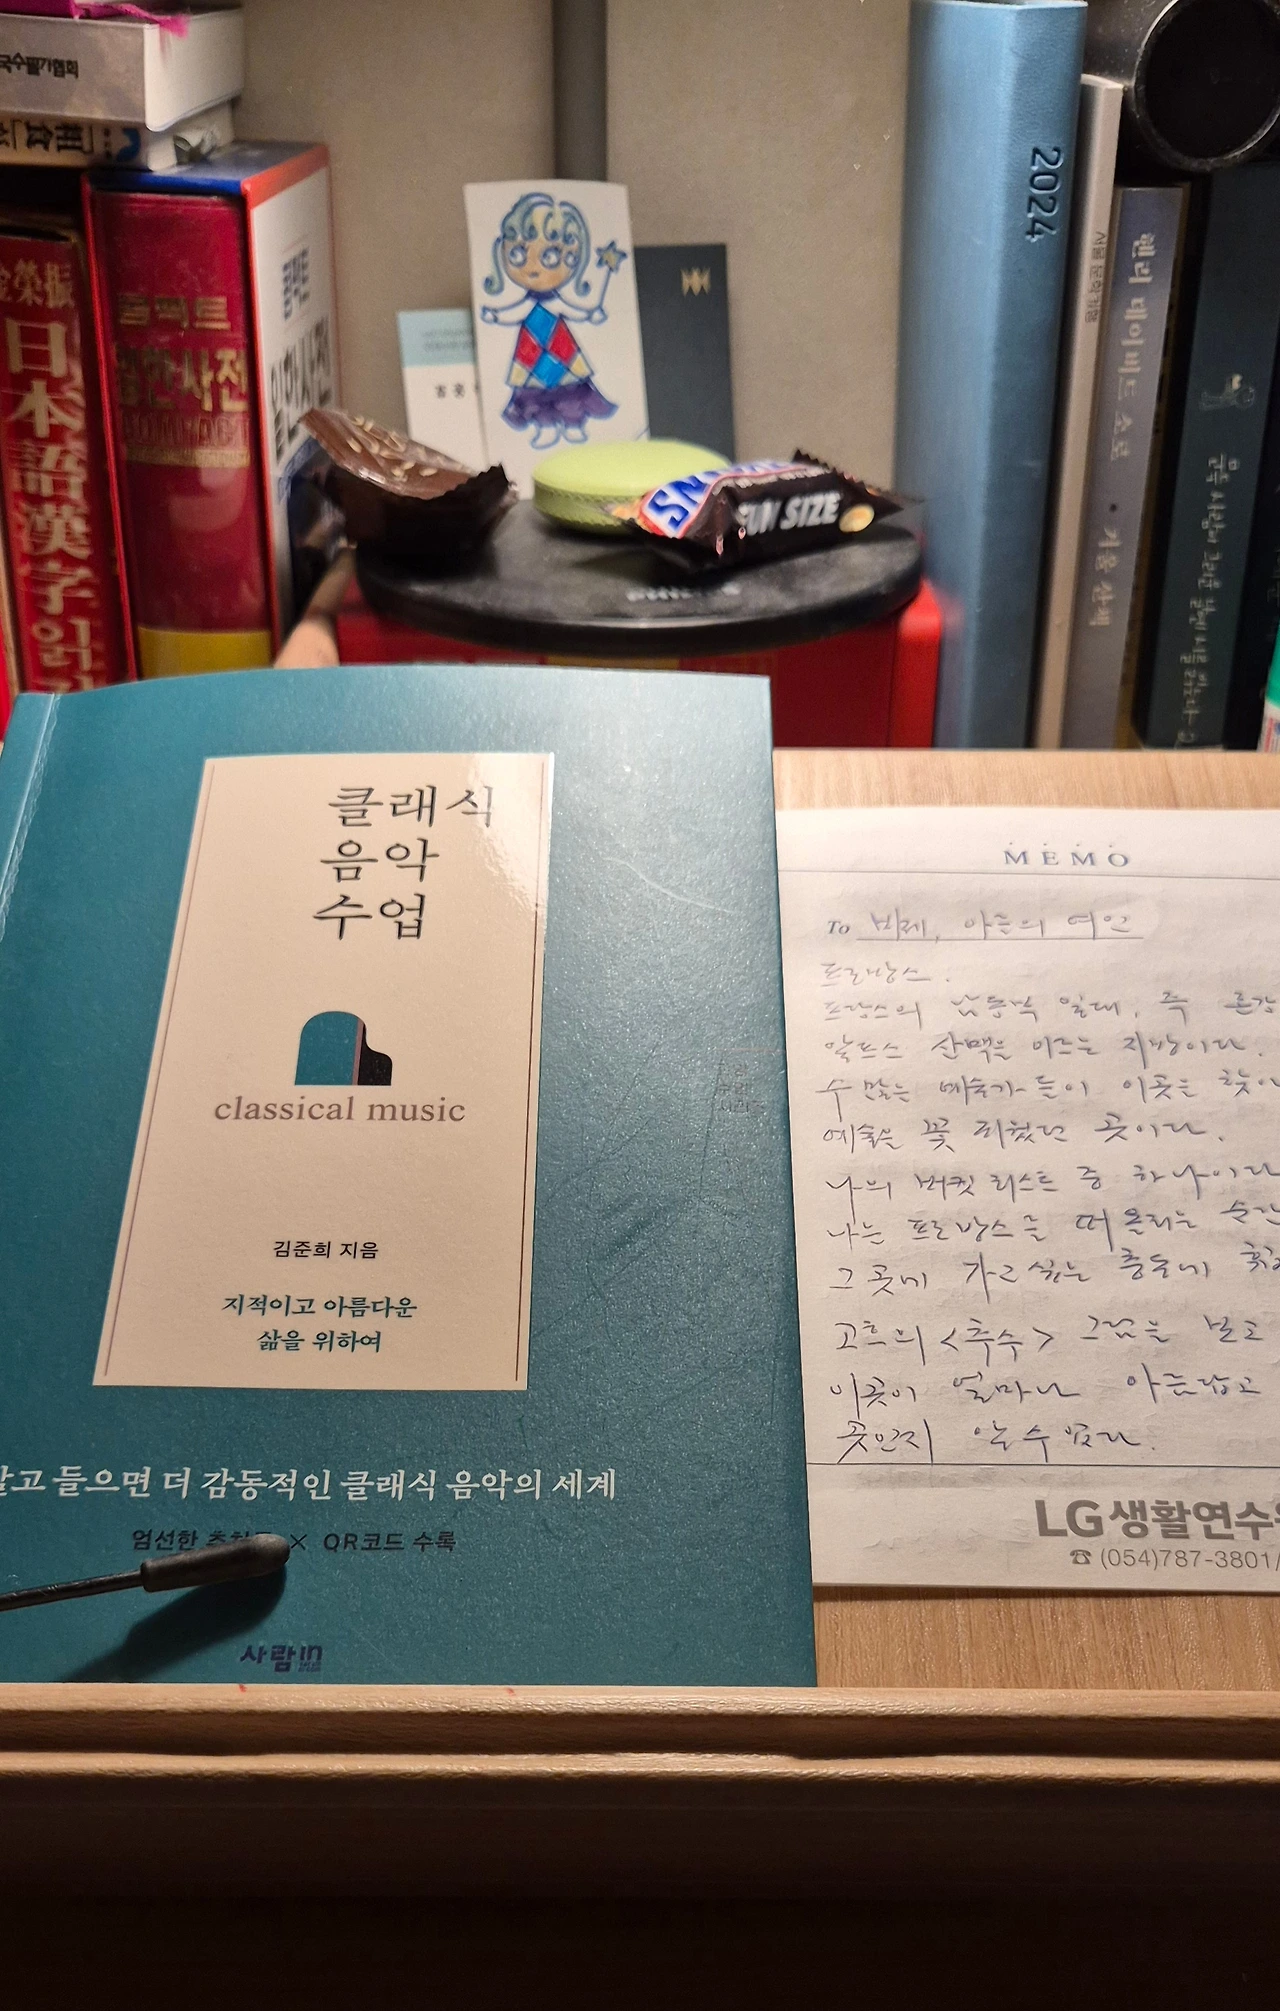 국수필가협회
粗食
金榮振
日本語漢字읽기
콤팩트
일한사전
콤팩트
일한사전
2024
서울 문학기행
헨리 데이비드 소로 • 겨울 산책
SNICKERS
FUN SIZE
PHILIPS
클래식
음악
수업
classical music
김준희 지음
지적이고 아름다운
삶을 위하여
알고 들으면 더 감동적인 클래식 음악의 세계
엄선한 × QR코드 수록
사람in
MEMO
To 비제, 아를의 여인
프로방스.
프랑스의 남동부 일대, 즉 론강
알프스 산맥을 이르는 지방이다.
수 많은 예술가들이 이곳을 찾아
예술을 꽃 피웠던 곳이다.
나의 버킷 리스트 중 하나이다
나는 프로방스를 떠올리는 순간
그 곳에 가고 싶은 충동에
고흐의 <추수> 그림을 보고
이곳이 얼마나 아름답고
곳인지 알 수 있다.
LG생활연수원
☎ (054)787-3801/